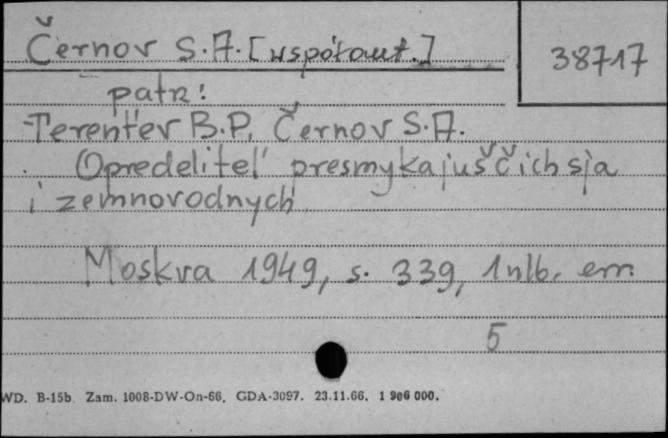 Černov S.A. [współaut.]
38717
patrz:
Terent'ev B.P., Černov S.A.
Opredelitel' presmykajuščichsja
i zemnovodnych
Moskva 1949, s. 339, 1 nlb. cm
5
WD. B-15b. Zam. 1008-DW-On-66, GDA-3097. 23.11.66. 1 906 000.